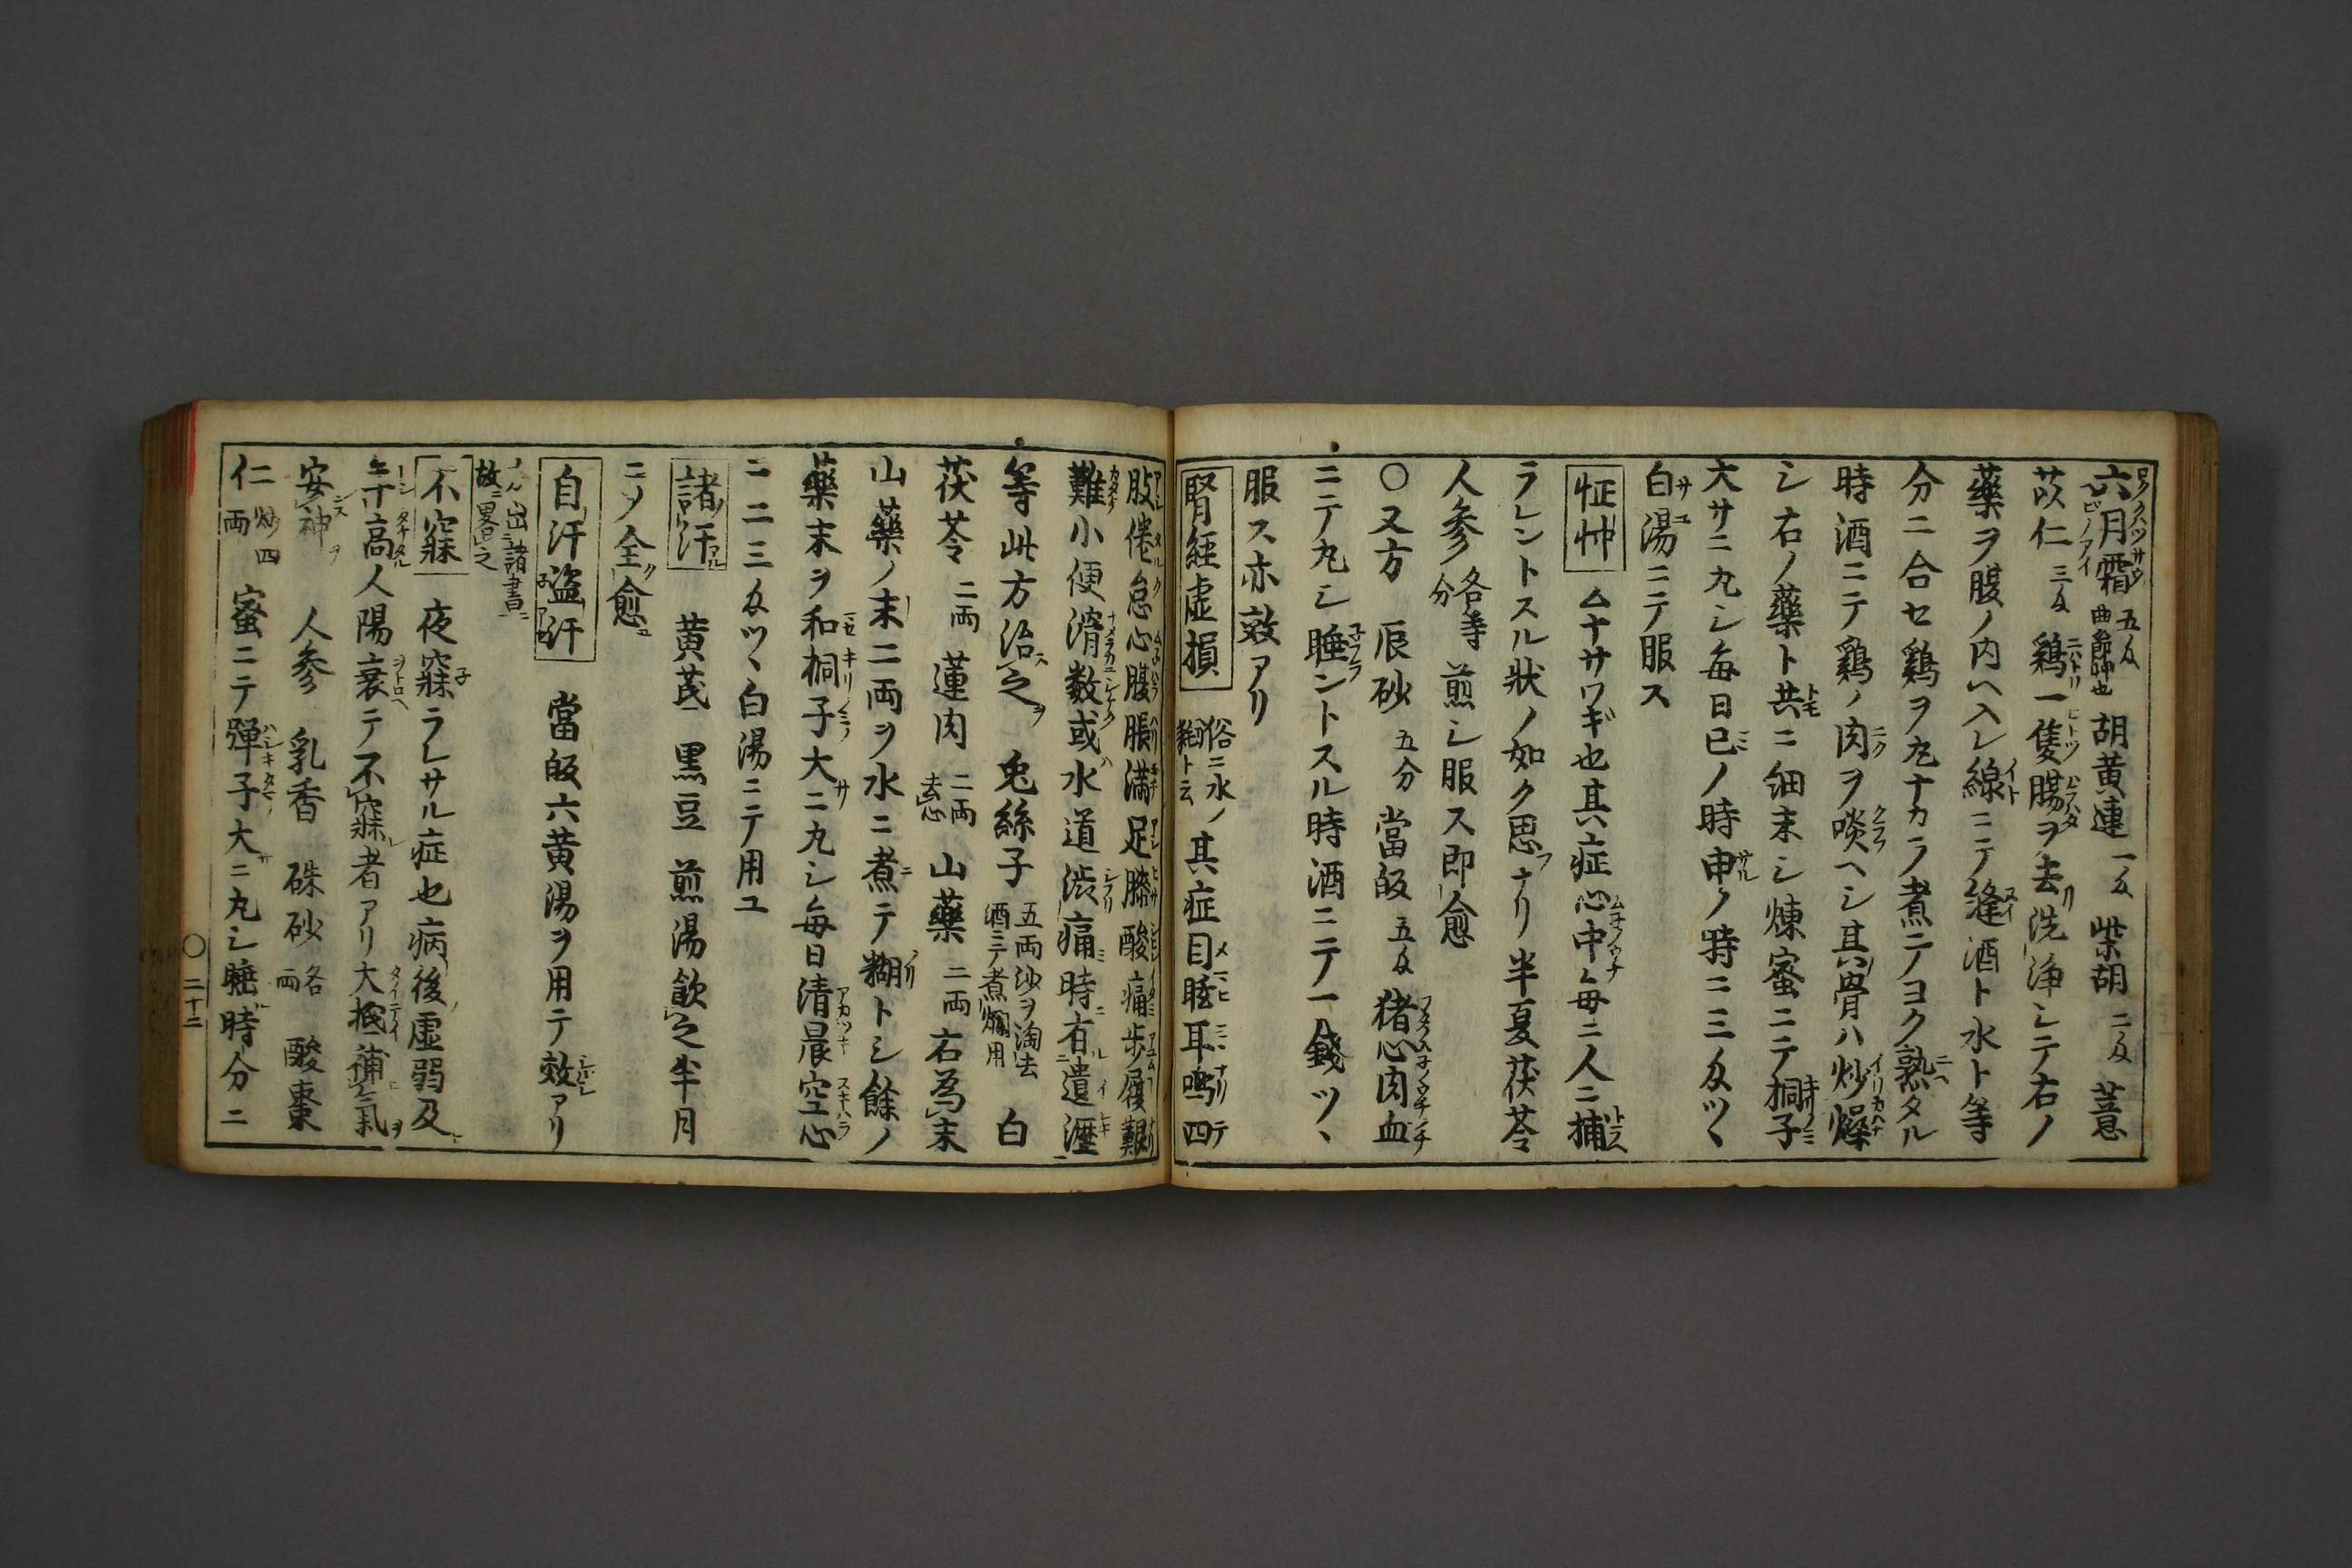 六月霜 五匁 曲節神也 胡黄連 一匁 柴胡 二匁 薏
苡仁 三匁 鶏一隻腸ヲ去リ洗浄シテ右ノ
藥ヲ腹ノ内ヘ入レ線ニテ縫酒ト水ト等
分ニ合セ鶏ヲ丸ナカラ煮テヨク熟タル
時酒ニテ鶏ノ肉ヲ啖ヘシ其骨ハ炒燥
シ右ノ藥ト共ニ細末シ煉蜜ニテ桐子
大サニ丸シ毎日巳ノ時申ノ時ニ三匁ツヽ
白湯ニテ服ス
怔忡 ムナサワギ也其症心中毎ニ人ニ捕
ラレントスル狀ノ如ク思フナリ半夏茯苓
人参 各等分 煎シ服ス即愈
〇又方 辰砂 五分 當皈 五匁 猪心肉血
ニテ丸シ睡ントスル時酒ニテ一錢ツヽ
服ス亦效アリ
腎經虚損 俗ニ水ノ トス 其症目眩耳鳴四
肢倦怠心腹脹滿足膝酸痛歩履艱
難小便滑数或水道渋痛時有遺瀝
等此方治之 兎絲子 五両沙ヲ淘去酒ニテ煮爛用 白
茯苓 二両 蓮肉 二両去心 山藥 二両 右為末
山藥ノ末二両ヲ水ニ煮テ糊トシ餘ノ
藥末ヲ和桐子大サニ丸シ毎日清晨空心
ニ二三匁ツヽ白湯ニテ用ユ
諸汗 黄茋 黒豆 煎湯飲之半月
ニソ全愈
自汗盗汗 當皈六黄湯ヲ用テ效アリ
ノル出諸書ニ
故ニ畧之
不寐 夜寐ラレサル症也病後虚弱及
年高人陽衰テ不寐者アリ大抵補氣
安神 人参 乳香 硃砂 各両 酸棗
仁 炒四両 蜜ニテ彈子大ニ丸シ睡時分ニ
〇 二十二